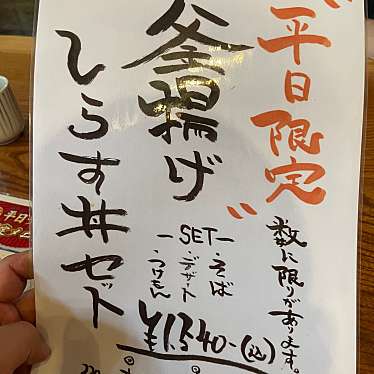 "平日限定"
数に限りがあります。
釜揚げ
しらす丼セット
ーSETー
・そば
・デザート
・つけもん
¥1,540-(込)